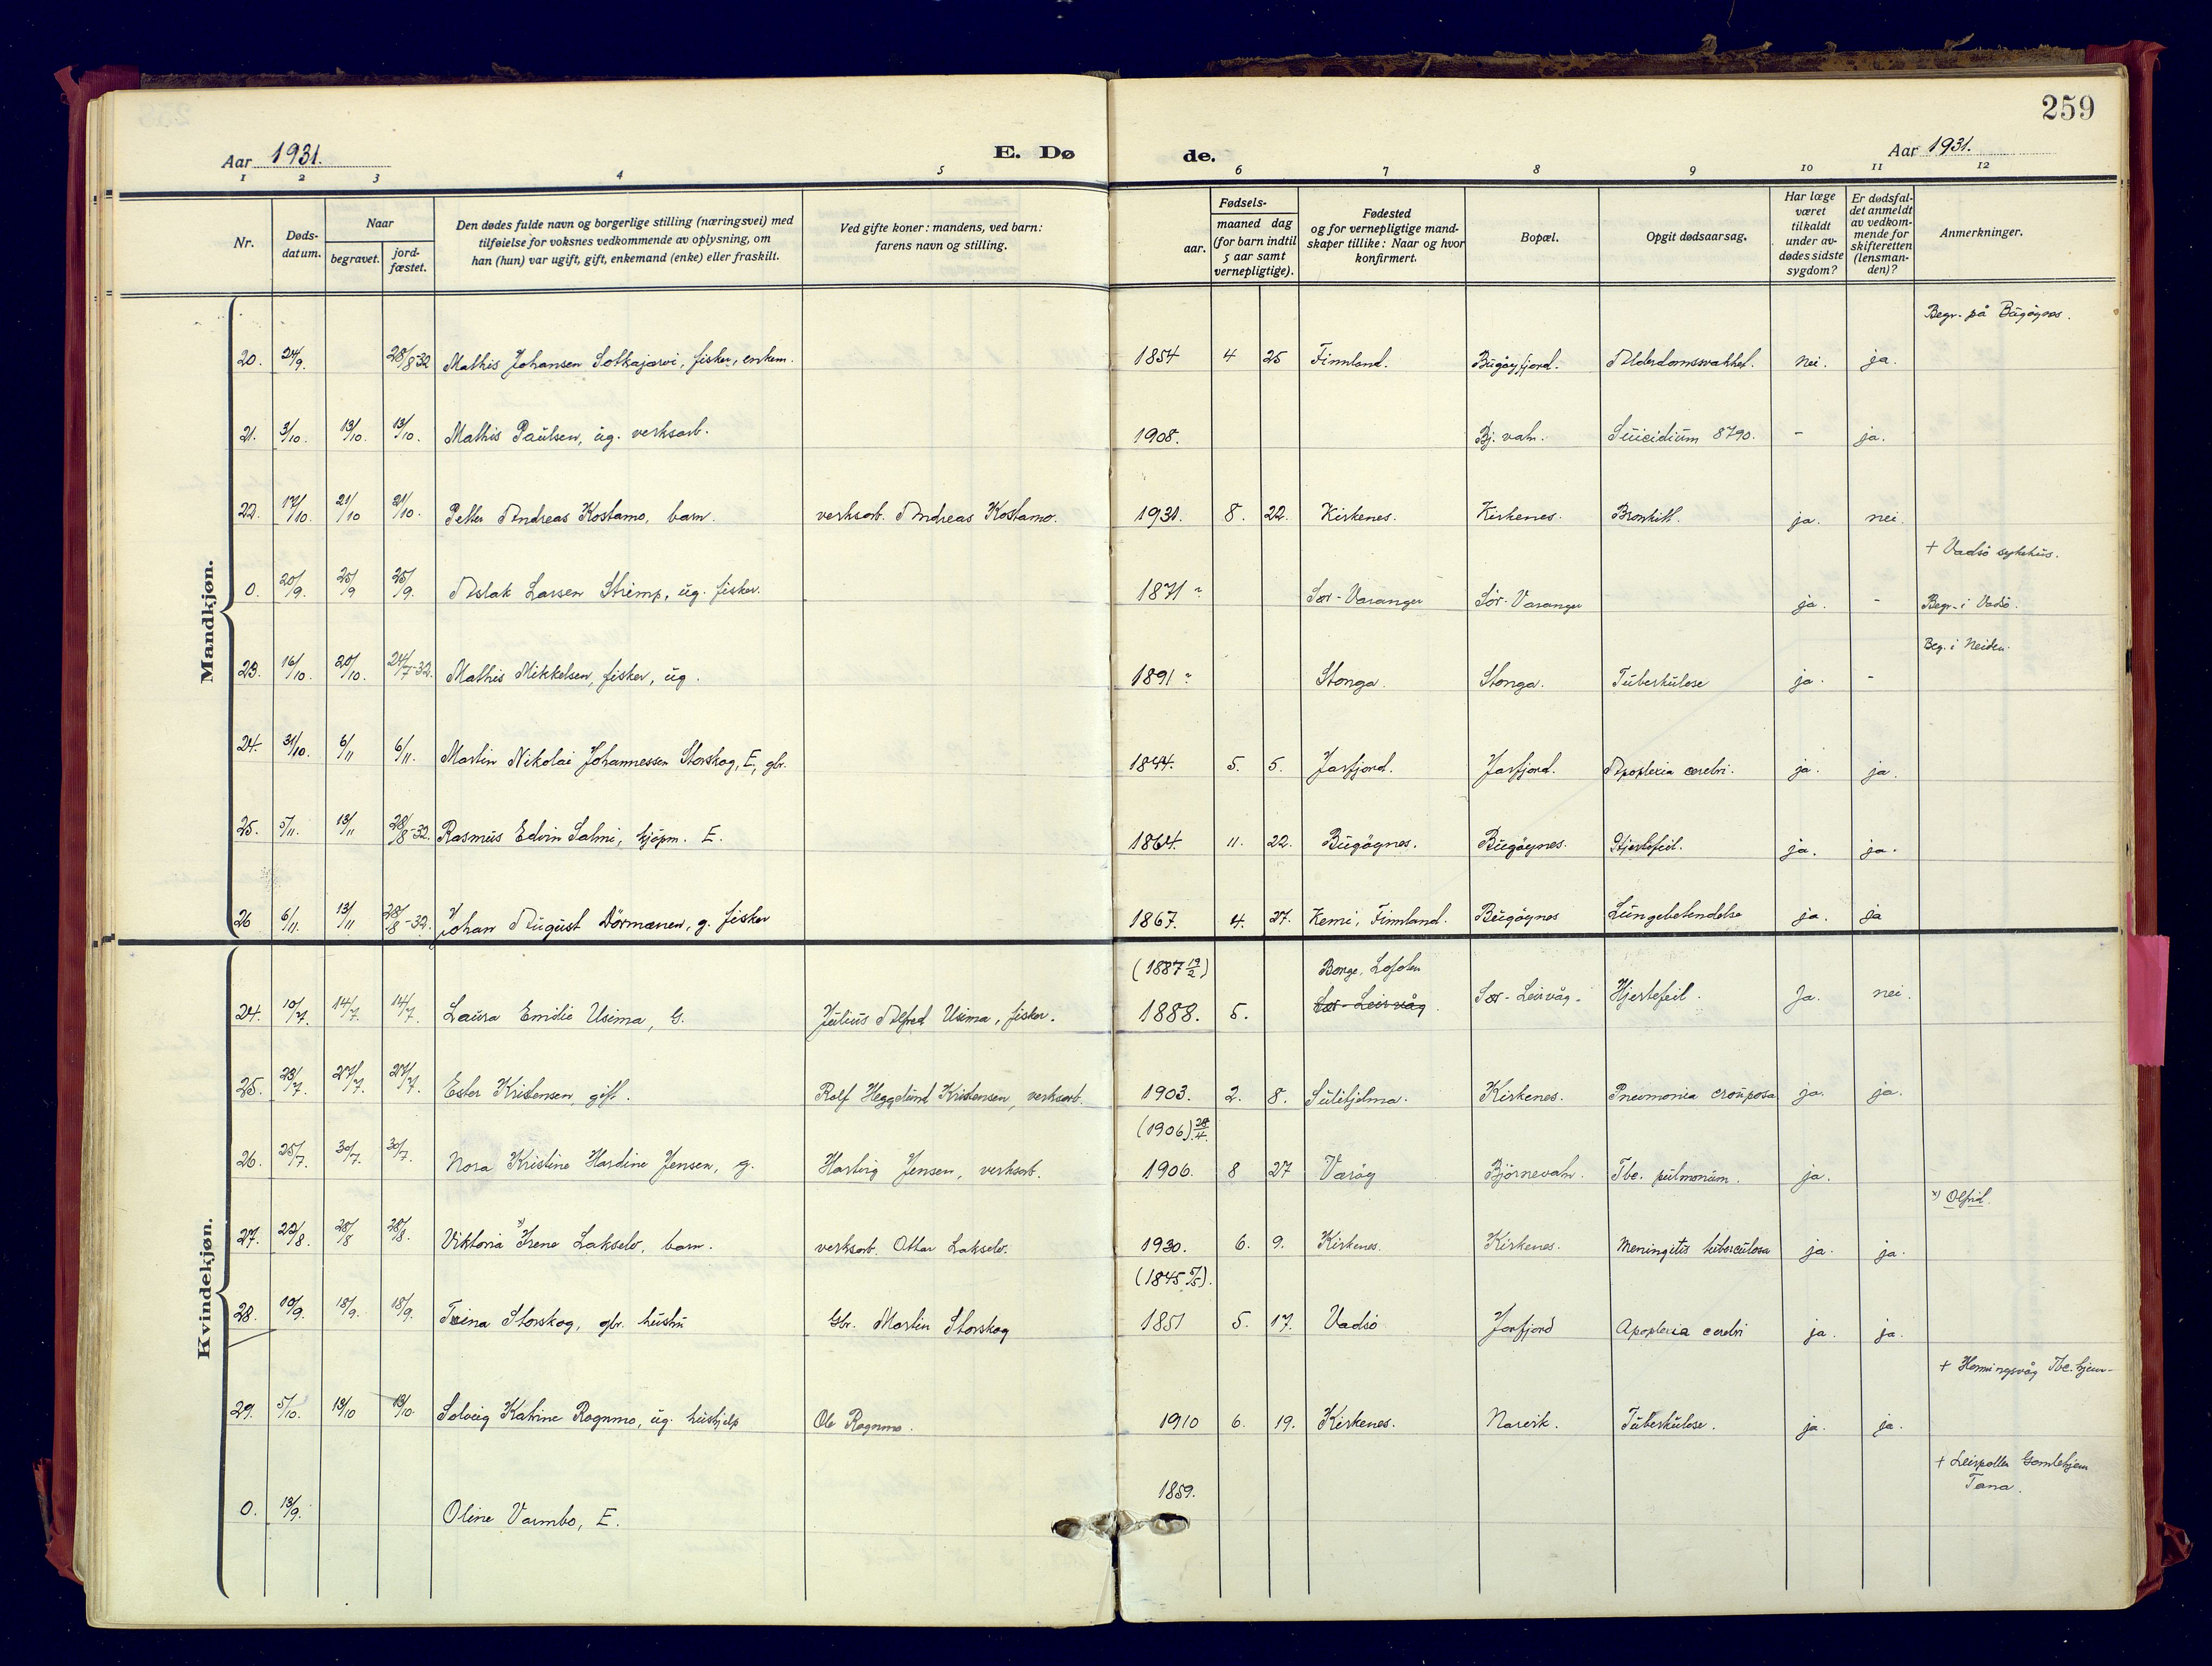 259
Aar 1931. E. Dø de. Aar 1931.
1 2 3 4 5 6 7 8 9 10 11 12
Nr. Døds-datum. Naar begravet. jord-fæstet. Den dødes fulde navn og borgerlige stilling (næringsvei) med tilføielse for voksnes vedkommende av oplysning, om han (hun) var ugift, gift, enkemand (enke) eller fraskilt. Ved gifte koner: mandens, ved barn: farens navn og stilling. Fødsels- aar. maaned dag (for barn indtil 5 aar samt vernepligtige). Fødested og for vernepligtige mand-skaper tillike: Naar og hvor konfirmert. Bopæl. Opgit dødsaarsag. Har læge været tilkaldt under av-dødes sidste sygdom? Er dødsfal-det anmeldt av vedkom-mende for skifteretten (lensman-den)? Anmerkninger.
Mandkjøn.
Begr. på Bugøynes.
20. 24/9. 28/8-32 Mathis Johansen Sotkajærvi, fisker, enkem. 1854 4 25 Finnland. Bugøyfjord. Alderdomsvakhet. nei. ja.
21. 3/10. 13/10. 13/10. Mathis Paulsen, ug. verksarb. 1908. Bj. vatn. Suicidium 8790. - ja.
22. 17/10. 21/10 21/10. Petter Andreas Kostamo, barn. verksarb. Andreas Kostamo. 1931. 8. 22. Kirkenes. Kirkenes. Bronkitt. ja. nei.
+ Vadsø sykehus.
0. 20/9. 25/9 25/9. Aslak Larsen Strimp, ug. fisker. 1871 Sør-Varanger Sør-Varanger ja. - Begr. i Vadsø.
Beg. i Neiden.
23. 16/10. 20/10. 24/7-32. Mathis Mikkelsen, fisker, ug. 1891 Stonga. Stonga. Tuberkulose ja. -
24. 31/10. 6/11 6/11. Martin Nikolai Johannessen Storskog, E, gbr. 1844. 5. 5. Jarfjord. Jarfjord. Apoplexia cerebri. ja. ja.
25. 5/11. 13/11 28/8-32. Rasmus Edvin Salmi, kjøpm. E. 1864. 11. 22. Bugøynes. Bugøynes. Hjertefeil. ja. ja.
26 6/11. 13/11 28/8-32. Johan August Dørmænen, g. fisker 1867. 4. 27. Kemi, Finnland. Bugøynes Lungebetendelse ja. ja
Kvindekjøn.
(1887 19/2) Borge, Lofoten
24. 10/7. 14/7. 14/7. Laura Emilie Usima, G. Julius Alfred Usima, fisker. 1888. 5. Sør-Leirvåg. Sør-Leirvåg. Hjertefeil. Ja. nei.
25. 23/7. 27/7. 27/7. Ester Kristensen, gift. Rolf Heggelund Kristensen, verksarb. 1903. 2. 8. Sulitjelma. Kirkenes. Pneumonia crouposa ja. ja.
(1906) 28/4.
26. 25/7. 30/7. 30/7. Nora Kristine Hardine Jensen, g. Hartvig Jensen, verksarb. 1906. 8 27 Værøy Bjørnevatn. Tbc. pulmonum. ja.
x) Olfrid.
27. 22/8. 28/8 28/8. Viktoria x) Irene Lakselv, barn. verksarb. Ottar Lakselv. 1930. 6. 9. Kirkenes. Kirkenes. Meningitis tuberculosa ja. ja.
(1845 5/5).
28. 10/9. 18/9. 18/9. Trina Storskog, gbr. hustru Gbr. Martin Storskog 1851 5. 17. Vadsø Jarfjord Apoplexia cerebri ja. ja.
+ Honningsvåg Tbc. hjem-
29. 5/10. 13/10 13/10. Solveig Katrine Rognmo, ug. hushjelp Ole Rognmo. 1910 6. 19. Kirkenes. Narvik. Tuberkulose. ja. ja.
+ Leirpollen Gamlehjem
Tana.
0. 13/9. Oline Varmbo, E. 1859.